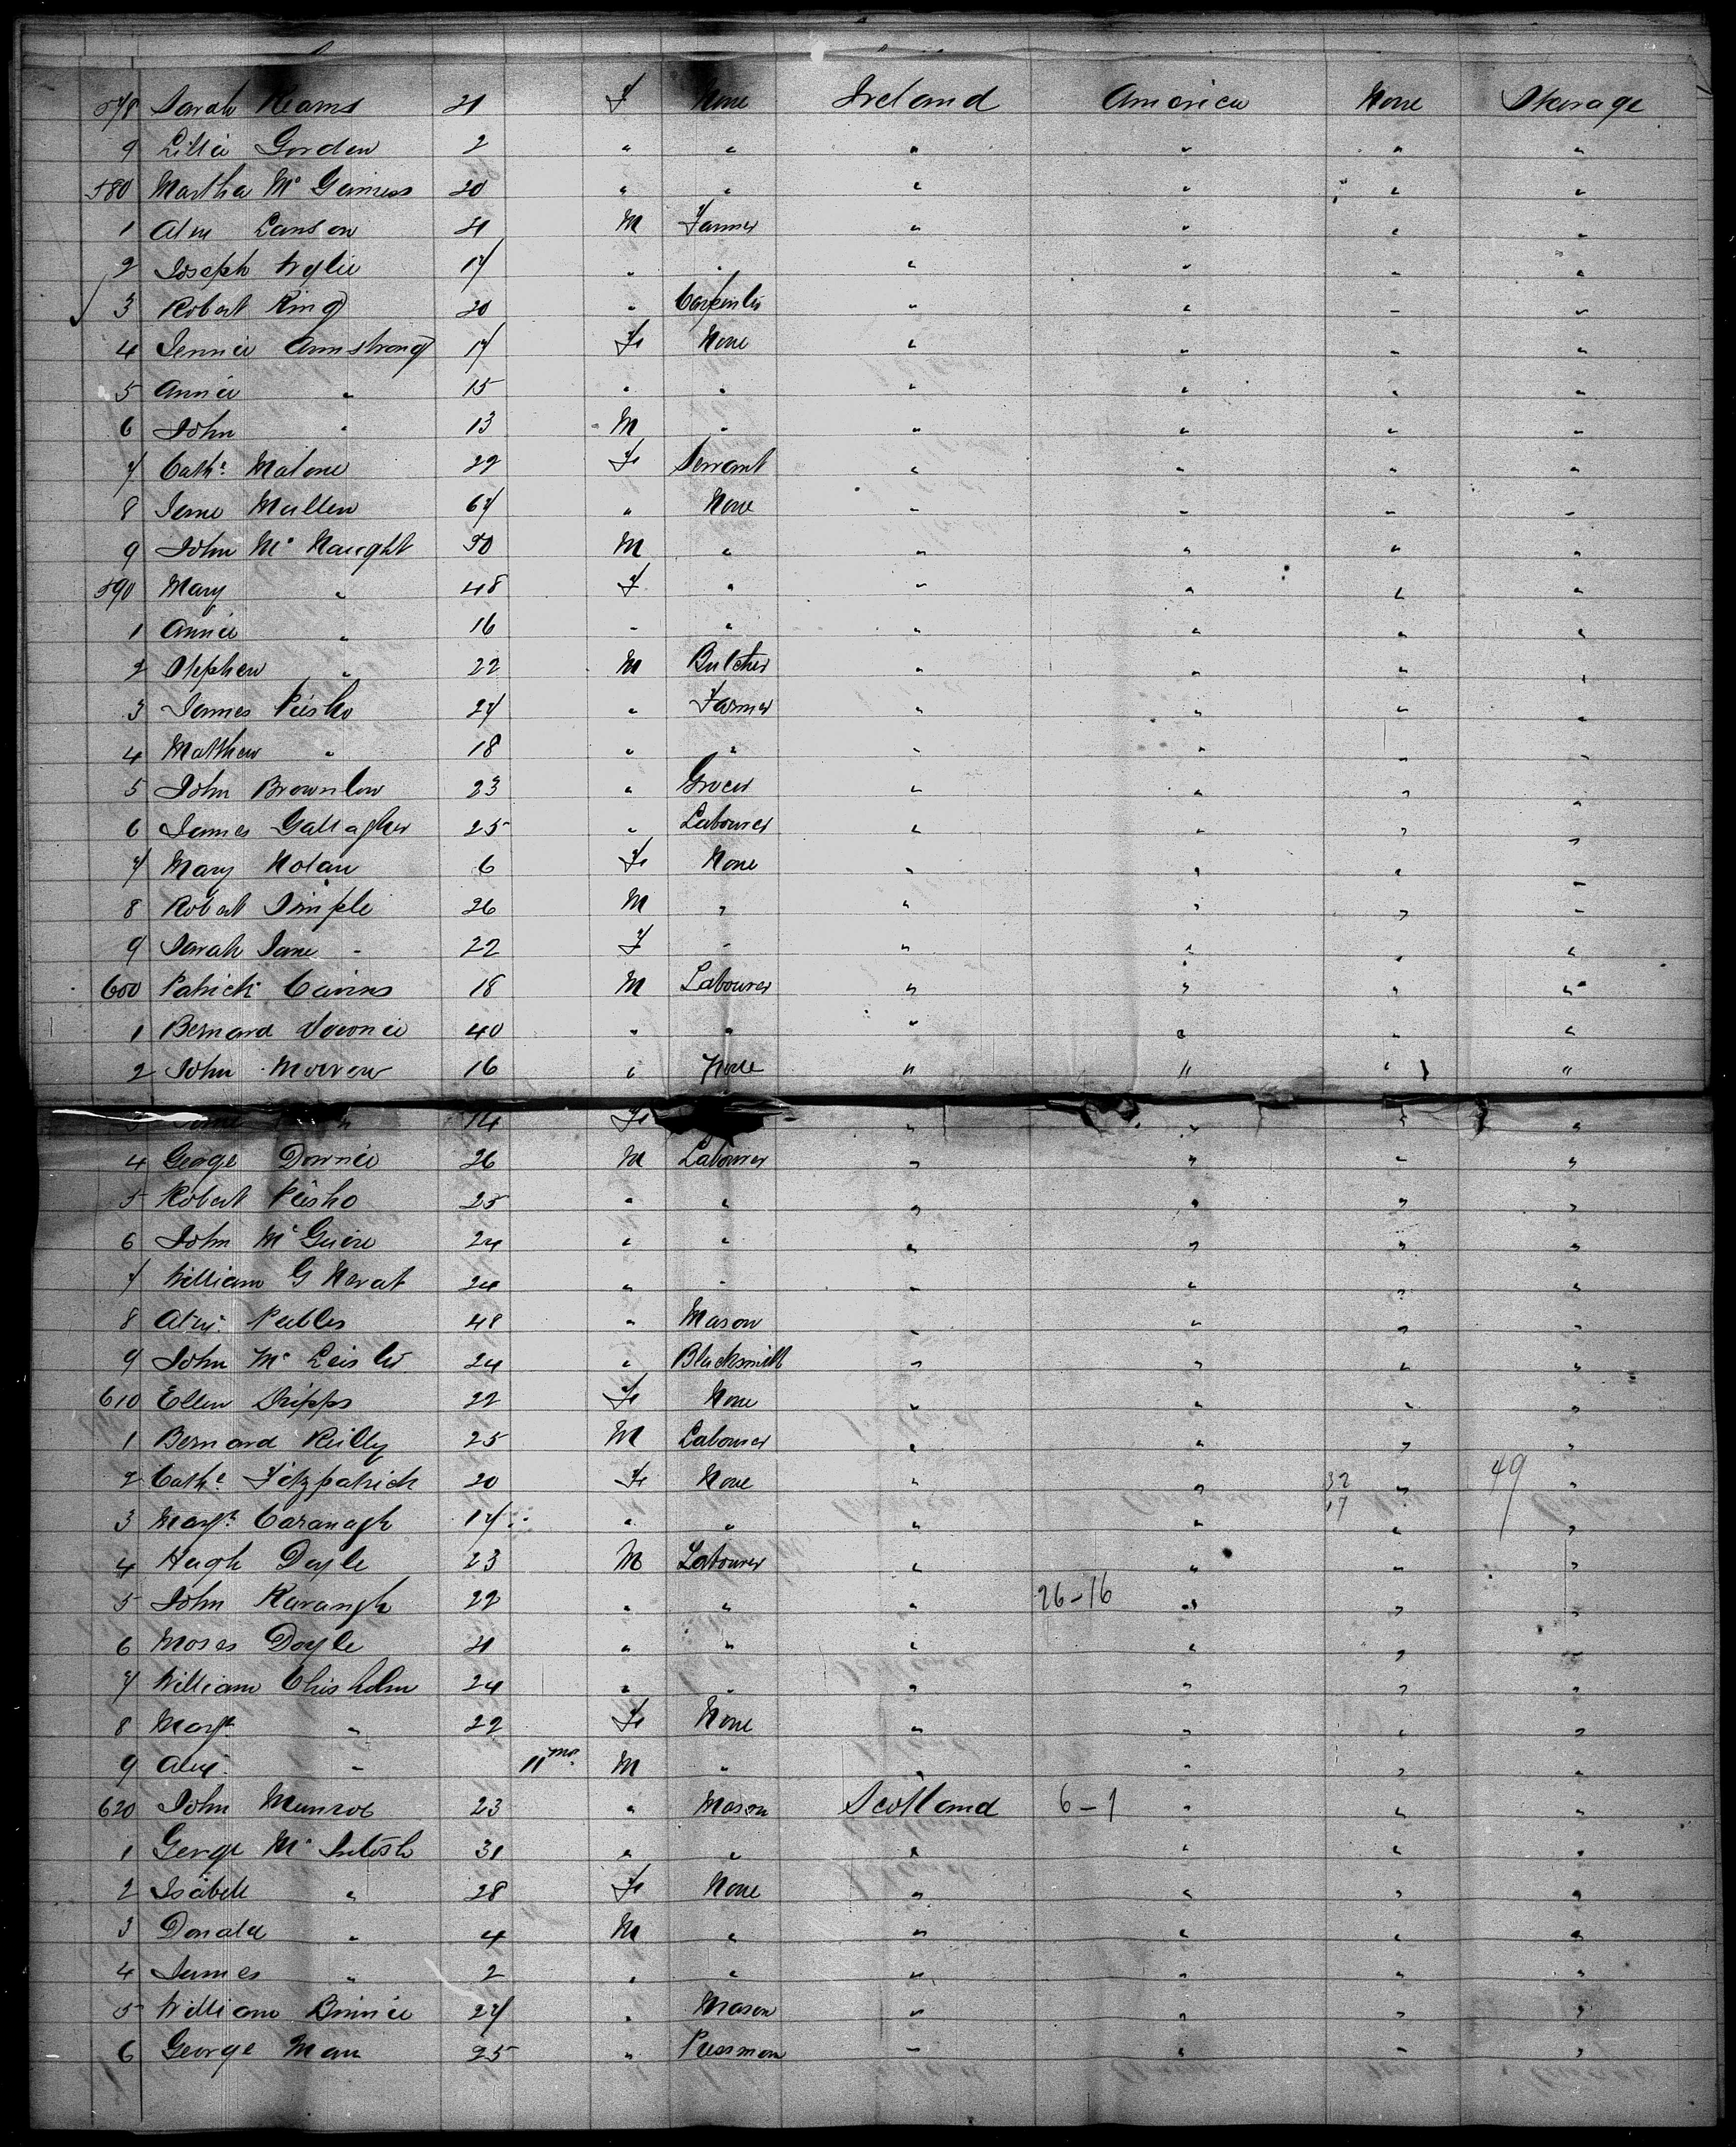 578 Sarah Kearns 21 F None Ireland America None Steerage
9 Lillie Gorden 2 " " " " " "
580 Martha Mc Guiness 20 " " " " " "
1 Alex Lanson 21 M Farmer " " " "
2 Joseph Wylie 17 " " " " " "
3 Robert King 20 " Carpenter " " " "
4 Jennie Armstrong 17 Fe None " " " "
5 Annie " 15 " " " " " "
6 John " 13 M " " " " "
7 Cathe Malone 22 Fe Servant " " " "
8 Jane Mullen 67 " None " " " "
9 John Mc Naught 50 M " " " " "
590 Mary " 48 F " " " " "
1 Annie " 16 " " " " " "
2 Stephen " 22 M Butcher " " " "
3 James Kisho 27 " Farmer " " " "
4 Matthew " 18 " " " " " "
5 John Brownlow 23 " Grocer " " " "
6 James Gallagher 25 " Labourer " " " "
7 Mary Nolan 6 Fe None " " " "
8 Robert Simple 26 M " " " " "
9 Sarah Jane " 22 F " " " " "
600 Patrick Cairns 18 M Labourer " " " "
1 Bernard Downie 40 " " " " " "
2 John Morrow 16 " None " " " "
14 Fe " " " "
4 George Downie 26 M Labourer " " " "
5 Robert Kisho 25 " " " " " "
6 John Mc Guire 24 " " " " " "
7 William G 24 " " " " " "
8 Alex. Peebles 48 " Mason " " " "
9 John Mc 24 " Blacksmith " " " "
610 Ellen Shipps 22 Fe None " " " "
1 Bernard Reilly 25 M Labourer " " " "
2 Cathe Fitzpatrick 20 Fe None " " 32 " 49 "
3 Margt Cavanagh 17 " " " " 17 " "
4 Hugh Doyle 23 M Labourer " " " "
5 John Kavangh 22 " " " 26-16 " " "
6 Moses Doyle 21 " " " " " "
7 William Chisholm 24 " " " " " "
8 Margt " 22 Fe None " " " "
9 Alex. " 11 mos. M " " " " "
620 John Munroe 23 " Mason Scotland 6-1 " " "
1 George Mc Intosh 31 " " " " " "
2 Isabell " 28 Fe None " " " "
3 Donald " 4 M " " " " "
4 James " 2 " " " " " "
5 William Binnie 27 " Mason " " " "
6 George Man 25 " Pressman " " " "